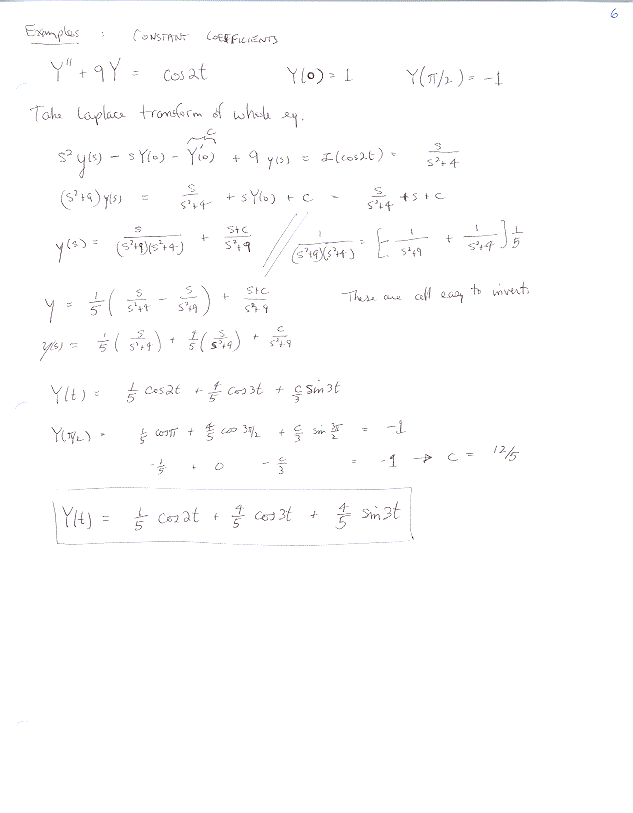 6
Examples : CONSTANT COEFFICIENTS
Y'' + 9Y = cos2t Y(0) = 1 Y(π/2) = -1
Take Laplace transform of whole eq.
C
s² y(s) - sY(0) - Y'(0) + 9 y(s) = ℒ(cos2t) = s/(s²+4)
(s²+9) y(s) = s/(s²+4) + sY(0) + c = s/(s²+4) + s + c
y(s) = s/((s²+9)(s²+4)) + (s+c)/(s²+9) // 1/((s²+9)(s²+4)) = [- 1/(s²+9) + 1/(s²+4)] 1/5
y = 1/5 ( s/(s²+4) - s/(s²+9) ) + (s+c)/(s²+9) These are all easy to invert.
y(s) = 1/5 ( s/(s²+4) ) + 4/5 ( s/(s²+9) ) + c/(s²+9)
Y(t) = 1/5 cos2t + 4/5 cos3t + c/3 sin3t
Y(π/2) = 1/5 cosπ + 4/5 cos 3π/2 + c/3 sin 3π/2 = -1
-1/5 + 0 - c/3 = -1 → c = 12/5
Y(t) = 1/5 cos2t + 4/5 cos3t + 4/5 sin3t